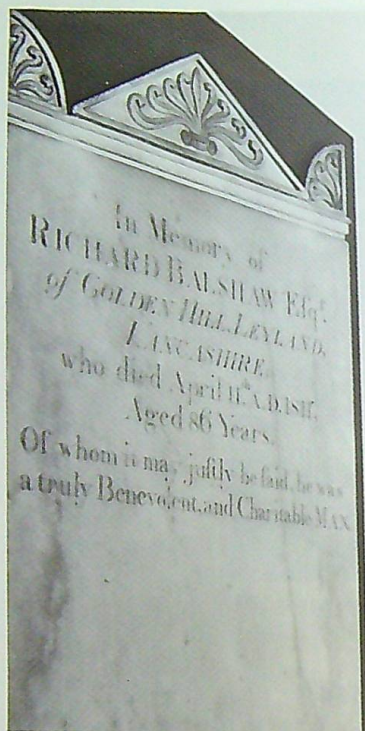 In Memory of
RICHARD BALSHAW Esqr.
of GOLDEN HILL, LEYLAND,
LANCASHIRE.
who died April 11th A.D.
Aged 86 Years.
Of whom it may justly be said, he was
a truly Benevolent, and Charitable MAN